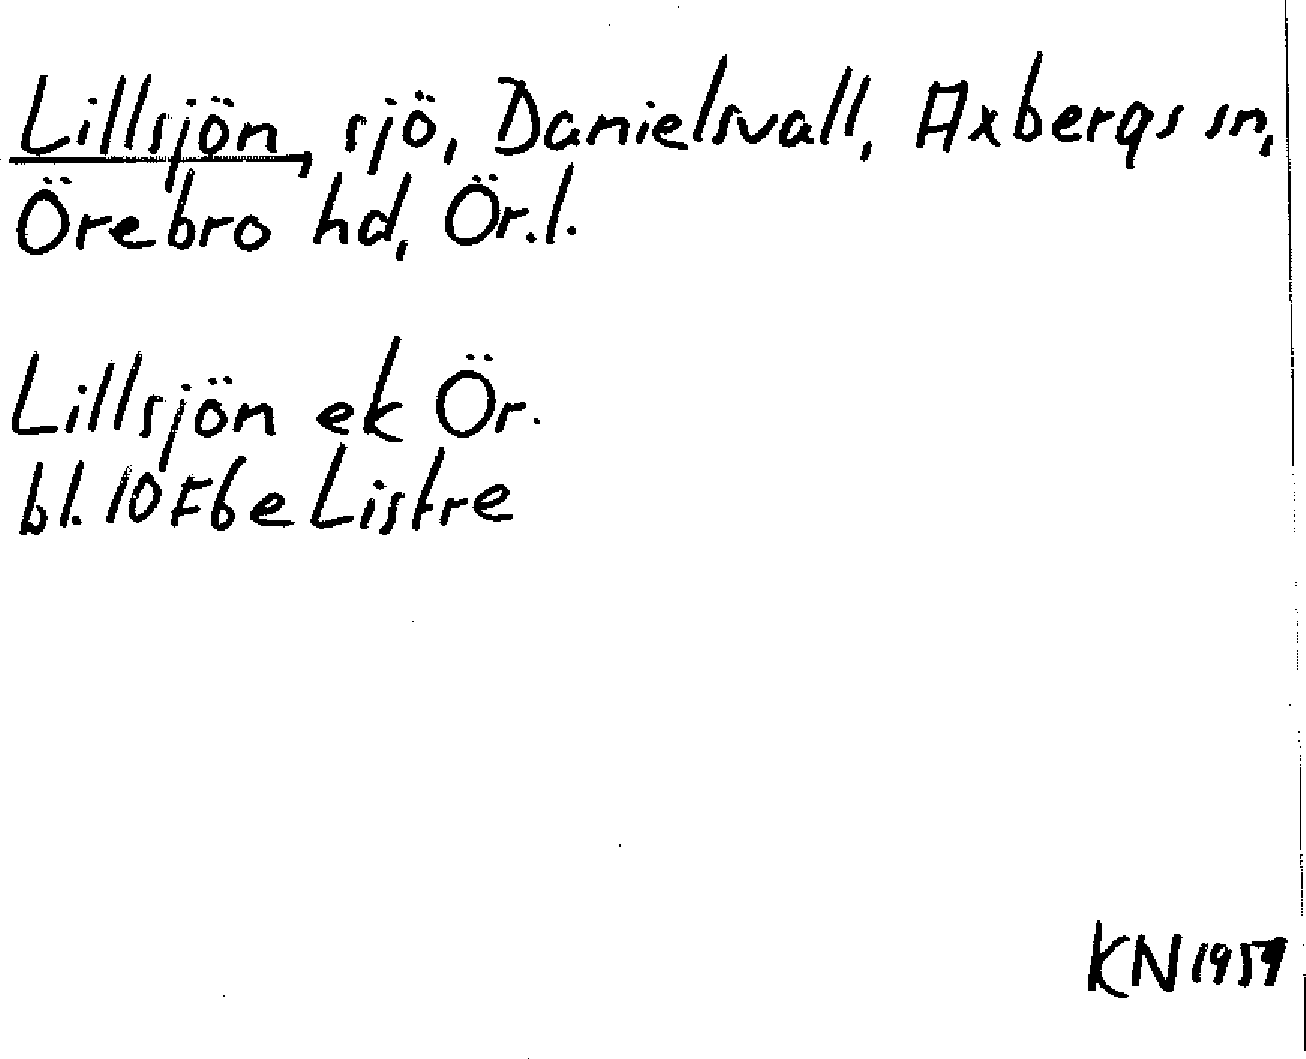 Lillsjön, sjö, Danielsvall, Axbergs sn,
Örebro hd, Ör.l.
Lillsjön ek Ör.
bl. 10 F6e Listre
KN